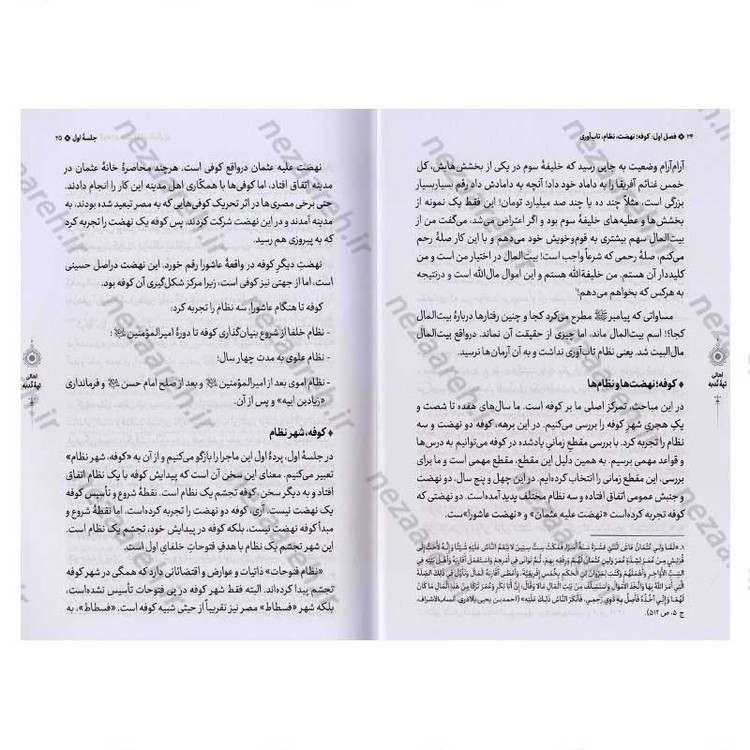 ۲۴ ❖ فصل اول: کوفه؛ نهضت، نظام، تاب‌آوری
آرام‌آرام وضعیت به جایی رسید که خلیفه سوم در یکی از بخشش‌هایش، کل
خمس غنائم آفریقا را به داماد خود داد! آنچه به دامادش داد رقم بسیاربسیار
بزرگی است، مثلاً چند ده یا چند صد میلیارد تومان! این فقط یک نمونه از
بخشش‌ها و عطیه‌های خلیفه سوم بود و اگر اعتراض می‌شد، می‌گفت من از
بیت‌المال سهم بیشتری به قوم‌وخویش خود می‌دهم و با این کار صلهٔ رحم
می‌کنم، صلهٔ رحمی که شرعاً واجب است! بیت‌المال در اختیار من است و من
کلیددار آن هستم. من خلیفةالله هستم و این اموال مال‌الله است و درنتیجه
به هرکس که بخواهم می‌دهم!
مساواتی که پیامبر ﷺ مطرح می‌کرد کجا و چنین رفتارها دربارهٔ بیت‌المال
کجا؟! اسم بیت‌المال ماند، اما چیزی از حقیقت آن نماند. درواقع بیت‌المال
مال‌البیت شد. یعنی نظام تاب‌آوری نداشت و به آن آرمان‌ها نرسید.
♦ کوفه؛ نهضت‌ها و نظام‌ها
در این مباحث، تمرکز اصلی ما بر کوفه است. ما سال‌های هفده تا شصت و
یک هجریِ شهرِ کوفه را بررسی می‌کنیم. در این برهه، کوفه دو نهضت و سه
نظام را تجربه کرد. با بررسی مقطع زمانیِ یادشده در کوفه می‌توانیم به درس‌ها
و قواعد مهمی برسیم. به همین دلیل این مقطع، مقطع مهمی است و ما برای
بررسی، این مقطع زمانی را انتخاب کرده‌ایم. در این چهل و پنج سال، دو نهضت
و جنبش عمومی اتفاق افتاده و سه نظام مختلف پدید آمده است. دو نهضتی که
کوفه تجربه کرده است «نهضت علیه عثمان» و «نهضت عاشورا»ست.
ج ۵، ص ۵۱۲).
جلسهٔ اول ❖ ۲۵
نهضت علیه عثمان درواقع کوفی است. هرچند محاصرهٔ خانهٔ عثمان در
مدینه اتفاق افتاد، اما کوفی‌ها با همکاری اهل مدینه این کار را انجام دادند.
حتی برخی مصری‌ها در اثر تحریک کوفی‌هایی که به مصر تبعید شده بودند، به
مدینه آمدند و در این نهضت شرکت کردند. پس کوفه یک نهضت را تجربه کرد
که به پیروزی هم رسید.
نهضتِ دیگرِ کوفه در واقعهٔ عاشورا رقم خورد. این نهضت دراصل حسینی
است، اما از جهتی نیز کوفی است، زیرا مرکز شکل‌گیری آن کوفه بود.
کوفه تا هنگام عاشورا، سه نظام را تجربه کرد:
- نظام خلفا از شروع بنیان‌گذاری کوفه تا دورهٔ امیرالمؤمنین؛
- نظام علوی به مدت چهار سال؛
- نظام اموی بعد از امیرالمؤمنین و بعد از صلح امام حسن و فرمانداری
«زیادبن ابیه» و پس از آن.
♦ کوفه، شهر نظام
در جلسهٔ اول، پردهٔ اول این ماجرا را بازگو می‌کنیم و از آن به «کوفه، شهر نظام»
تعبیر می‌کنیم. معنای این سخن آن است که پیدایش کوفه با یک نظام اتفاق
افتاد و به دیگر سخن، کوفه تجسّم یک نظام است. نقطهٔ شروع و تأسیس کوفه
یک نهضت نیست. آری، کوفه دو نهضت را تجربه کرده است، اما نقطهٔ شروع و
مبدأ کوفه نهضت نیست، بلکه کوفه در پیدایش خود، تجسّم یک نظام است.
این شهر تجسّم یک نظام با هدفِ فتوحاتِ خلفایِ اول است.
«نظام فتوحات» ذاتیات و عوارض و اقتضائاتی دارد که همگی در شهر کوفه
تجسّم پیدا کرده‌اند. البته فقط شهر کوفه در پی فتوحات تأسیس نشده است،
بلکه شهر «فسطاط» مصر نیز تقریباً از حیثی شبیه کوفه است. «فسطاط»، به
nezaareh.ir